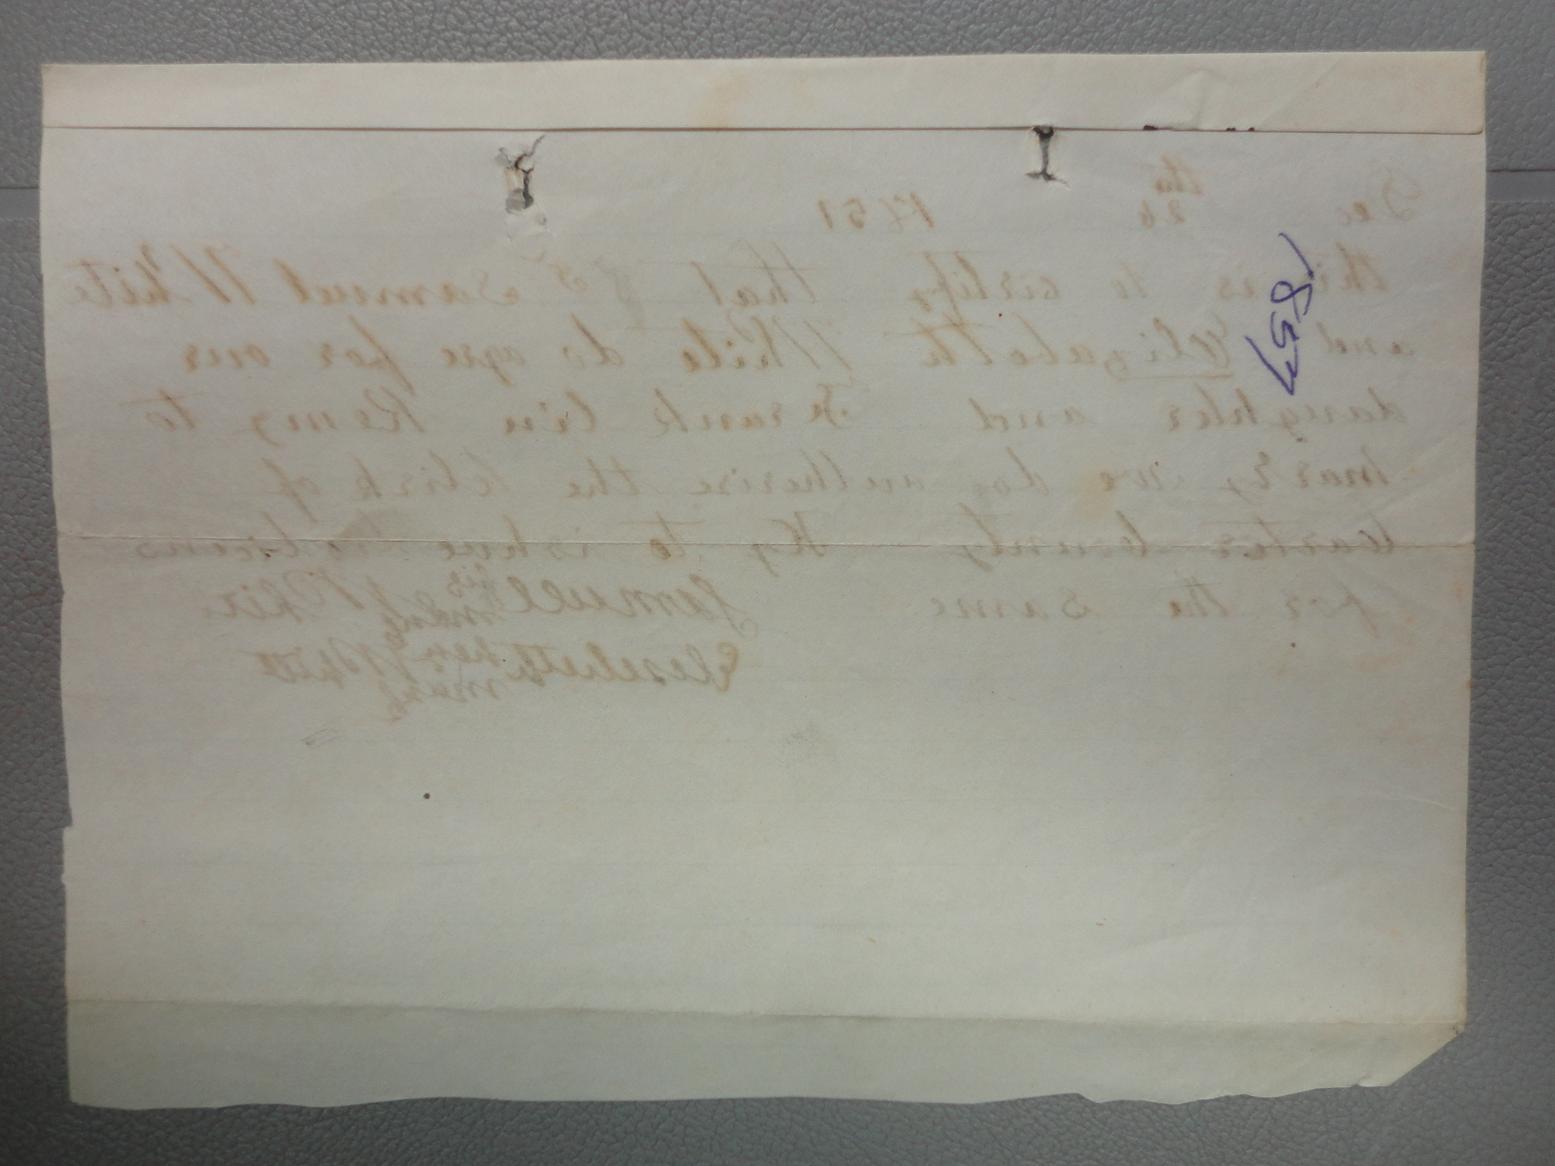 Dec 26 th 1851
1857
this is to certify that I Samuel White
and Elizabeth White do agre for our
daughter and Frank lin Remy to
marry we do autherise the Clirk of
Carter County Ky to ishue licens
for the same Samuell his mark White
Elizebeth her mark White